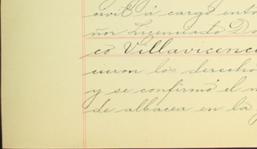 civil á cargo ento
ñor Licenciado Do
co Villavicenci
cieron los derecho
y se confirmó el n
de albacea en la